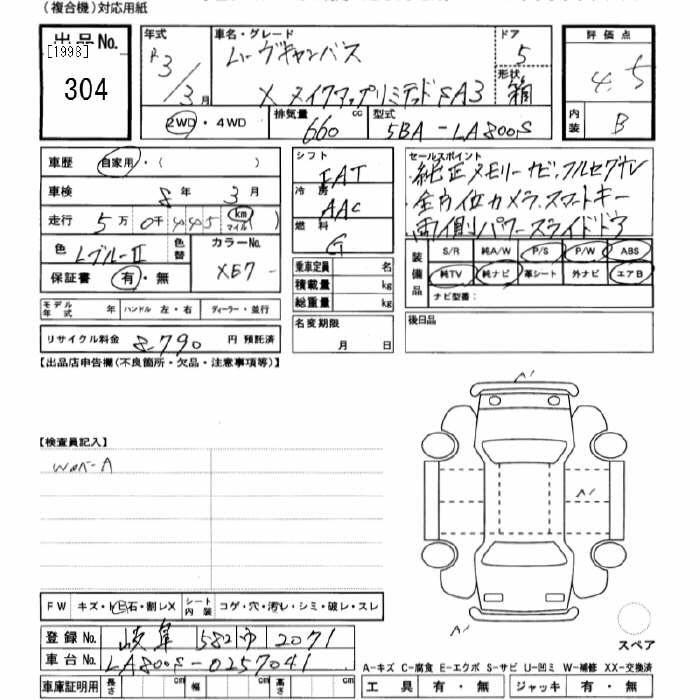 (複合機)対応用紙
出品No.
[1993]
304
年式 R3/3月
車名・グレード ムーヴキャンバス
X メイクアップリミテッド SA3
ドア 5
形状 箱
評価点 4.5
内装 B
2WD・4WD
排気量 660 cc
型式 5BA-LA800S
車歴 自家用・( )
車検 8年 3月
走行 5万0千445 km マイル
色 Lブルー II
色替
カラーNo. XE7-
保証書 有・無
シフト FAT
冷房 AAC
燃料 G
乗車定員 名
積載量 kg
総重量 kg
名変期限 月 日
セールスポイント
純正メモリーナビ,フルセグTV
全方位カメラ,スマートキー
両側パワースライドドア
装備品
S/R 純A/W P/S P/W ABS
純TV 純ナビ 革シート 外ナビ エアB
ナビ型番:
後日品
モデル年式 年 ハンドル 左・右 ディーラー・並行
リサイクル料金 8,790 円 預託済
【出品店申告欄(不良箇所・欠品・注意事項等)】
A1
【検査員記入】
A1
A1
FW キズ・ト石・割レX
シート内装 コゲ・穴・汚レ・シミ・破レ・スレ
登録No. 岐阜 582 ゆ 2071
車台No. LA800S-0257041
車庫証明用 長さ cm 幅 cm 高さ cm
スペア
A-キズ C-腐食 E-エクボ S-サビ U-凹ミ W-補修 XX-交換済
工具 有・無 ジャッキ 有・無